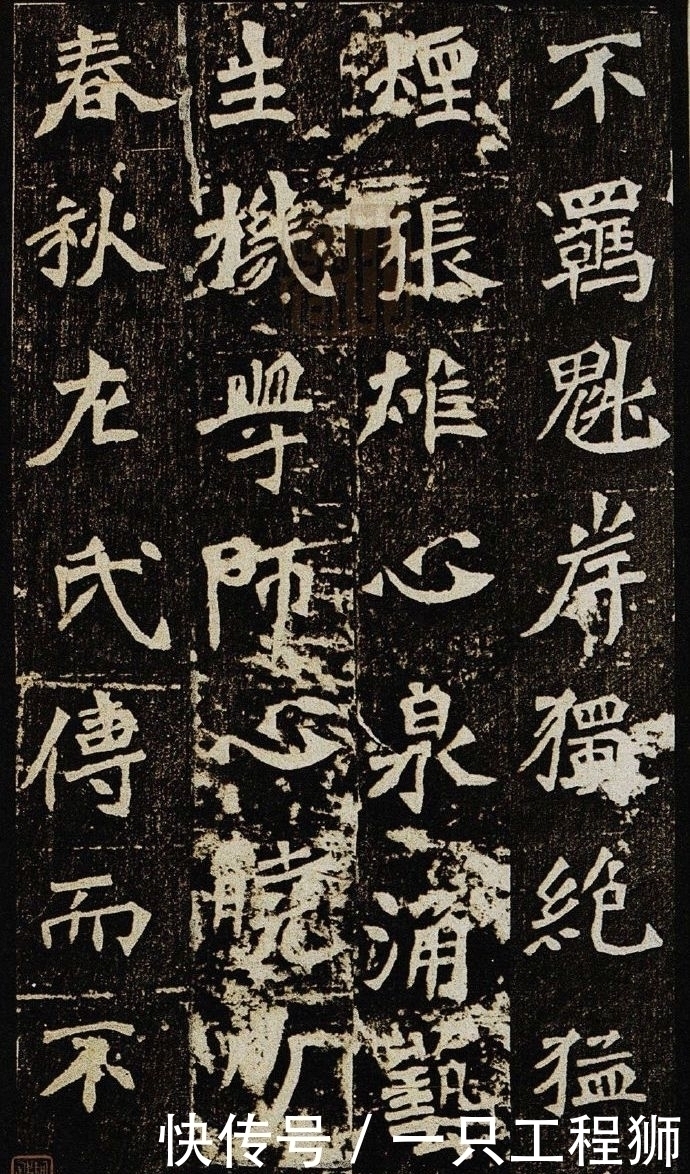 不羈魁岸獨絕猛
煙張雄心泉涌藝
生機學師心曉
春秋左氏傳而不
快传号 / 一只工程狮